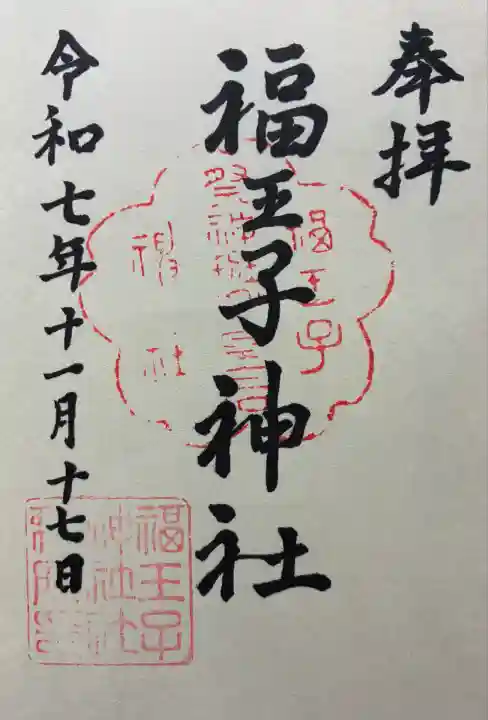 奉拝
福王子神社
令和七年十一月十七日
福王子
神社
福王子
神社社